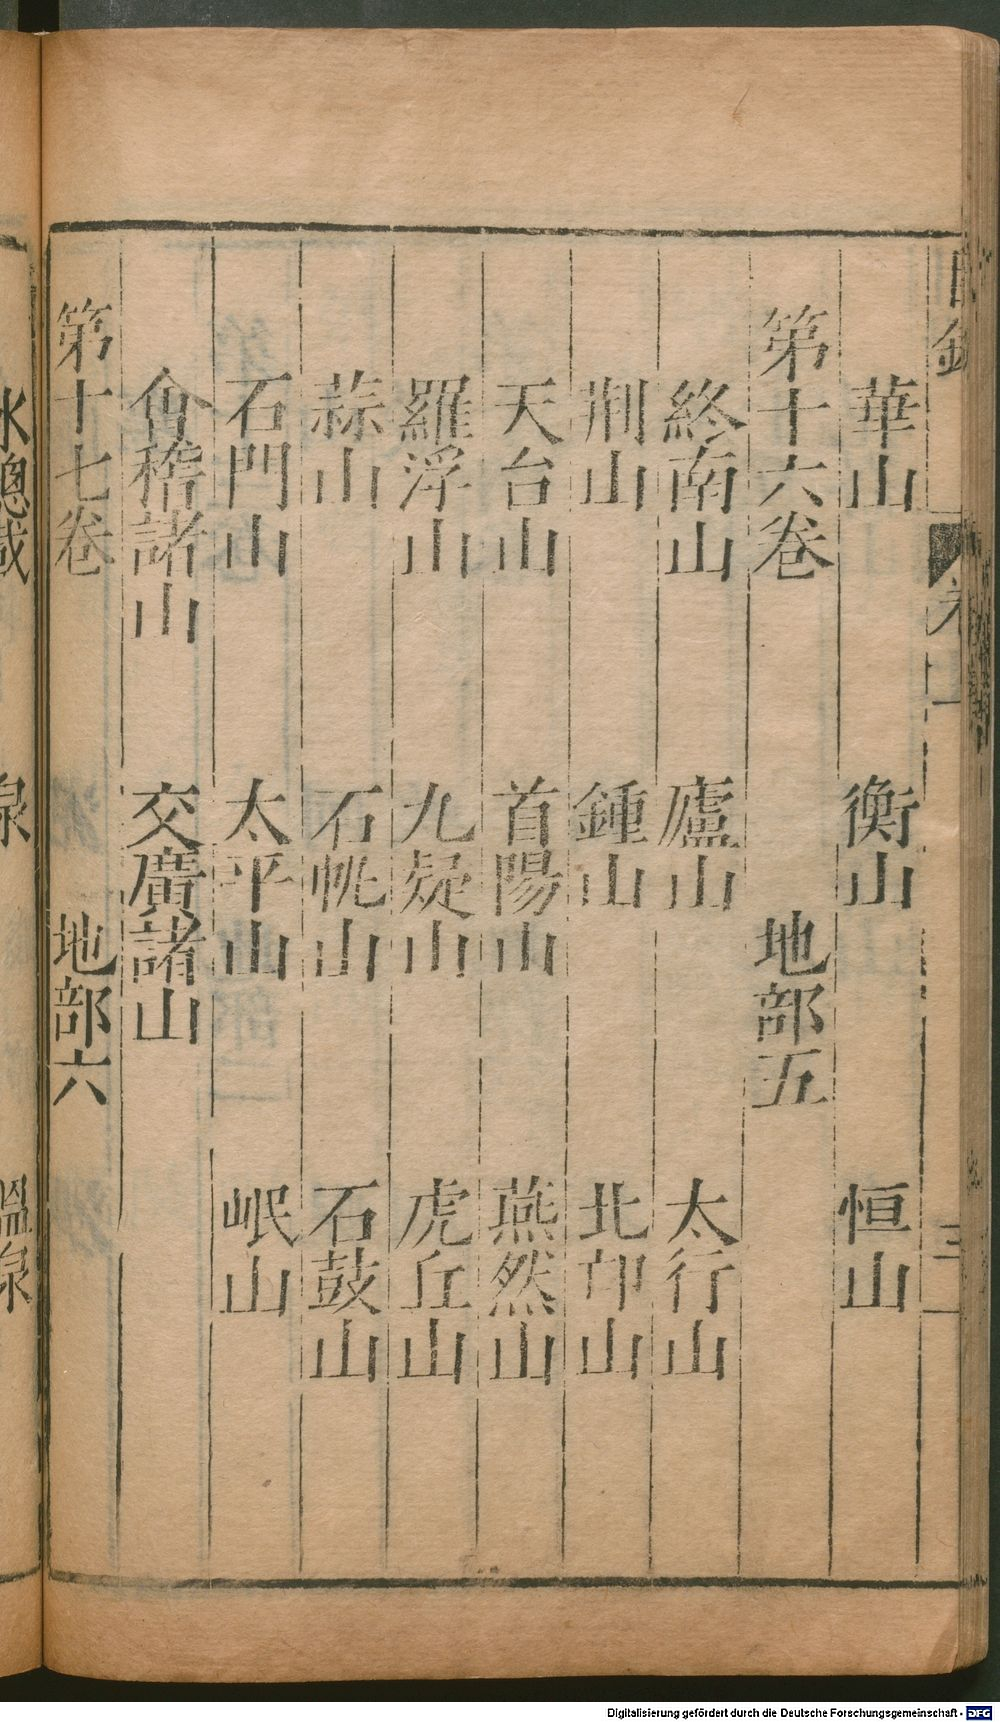 目錄
華山 衡山 恒山
第十六卷 地部五
終南山 廬山 太行山
荆山 鍾山 北邙山
天台山 首陽山 燕然山
羅浮山 九疑山 虎丘山
蒜山 石帆山 石鼓山
石門山 太平山 岷山
會稽諸山 交廣諸山
第十七卷 地部六
水總載 泉 溫泉
Digitalisierung gefördert durch die Deutsche Forschungsgemeinschaft - DFG